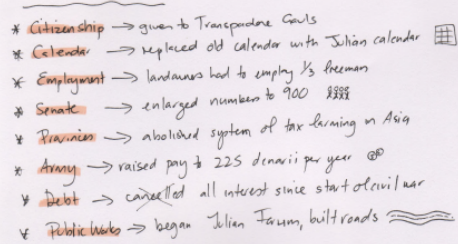 * Citizenship → given to Transpadane Gauls
* Calendar → replaced old calendar with Julian calendar
* Employment → landowners had to employ 1/3 freeman
* Senate → enlarged numbers to 900
* Provinces → abolished system of tax farming in Asia
* Army → raised pay to 225 denarii per year
* Debt → cancelled all interest since start of civil war
* Public Works → began Julian Forum, built roads